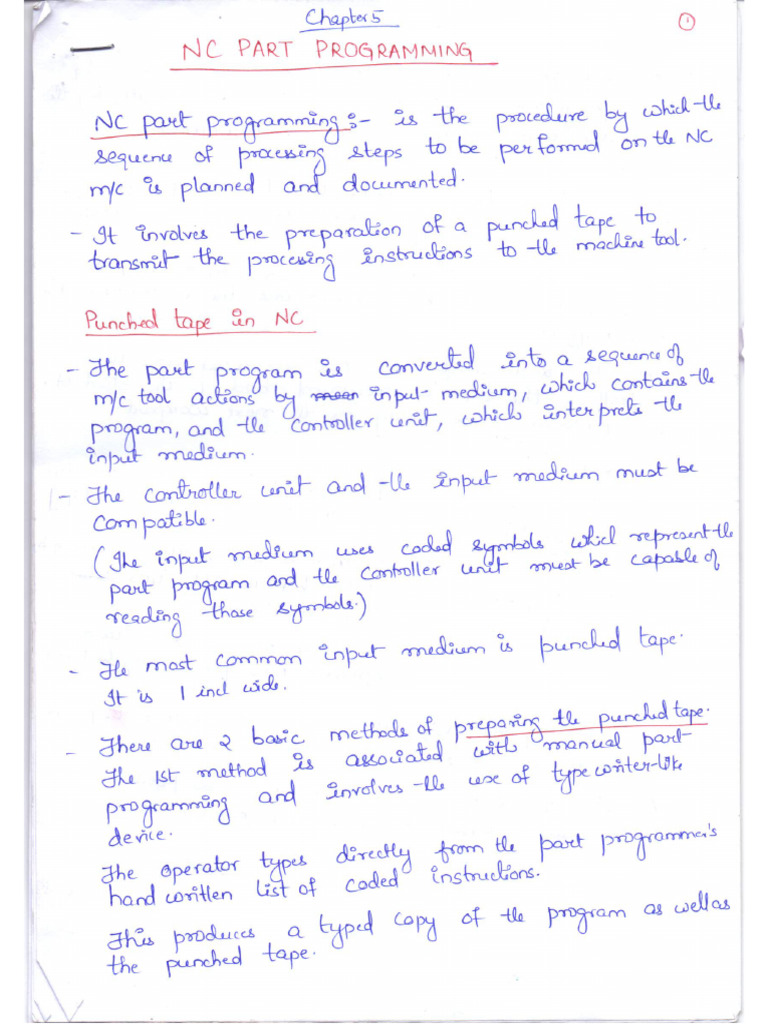 Chapter 5
①
NC PART PROGRAMMING
NC part programming :- is the procedure by which the
sequence of processing steps to be performed on the NC
m/c is planned and documented.
- It involves the preparation of a punched tape to
transmit the processing instructions to the machine tool.
Punched tape in NC
- The part program is converted into a sequence of
m/c tool actions by input medium, which contains the
program, and the controller unit, which interprets the
input medium.
- The controller unit and the input medium must be
compatible.
(The input medium uses coded symbols which represent the
part program and the controller unit must be capable of
reading those symbols.)
- The most common input medium is punched tape.
It is 1 inch wide.
- There are 2 basic methods of preparing the punched tape.
The 1st method is associated with manual part-
programming and involves the use of typewriter-like
device.
The operator types directly from the part programmer's
hand written list of coded instructions.
This produces a typed copy of the program as well as
the punched tape.